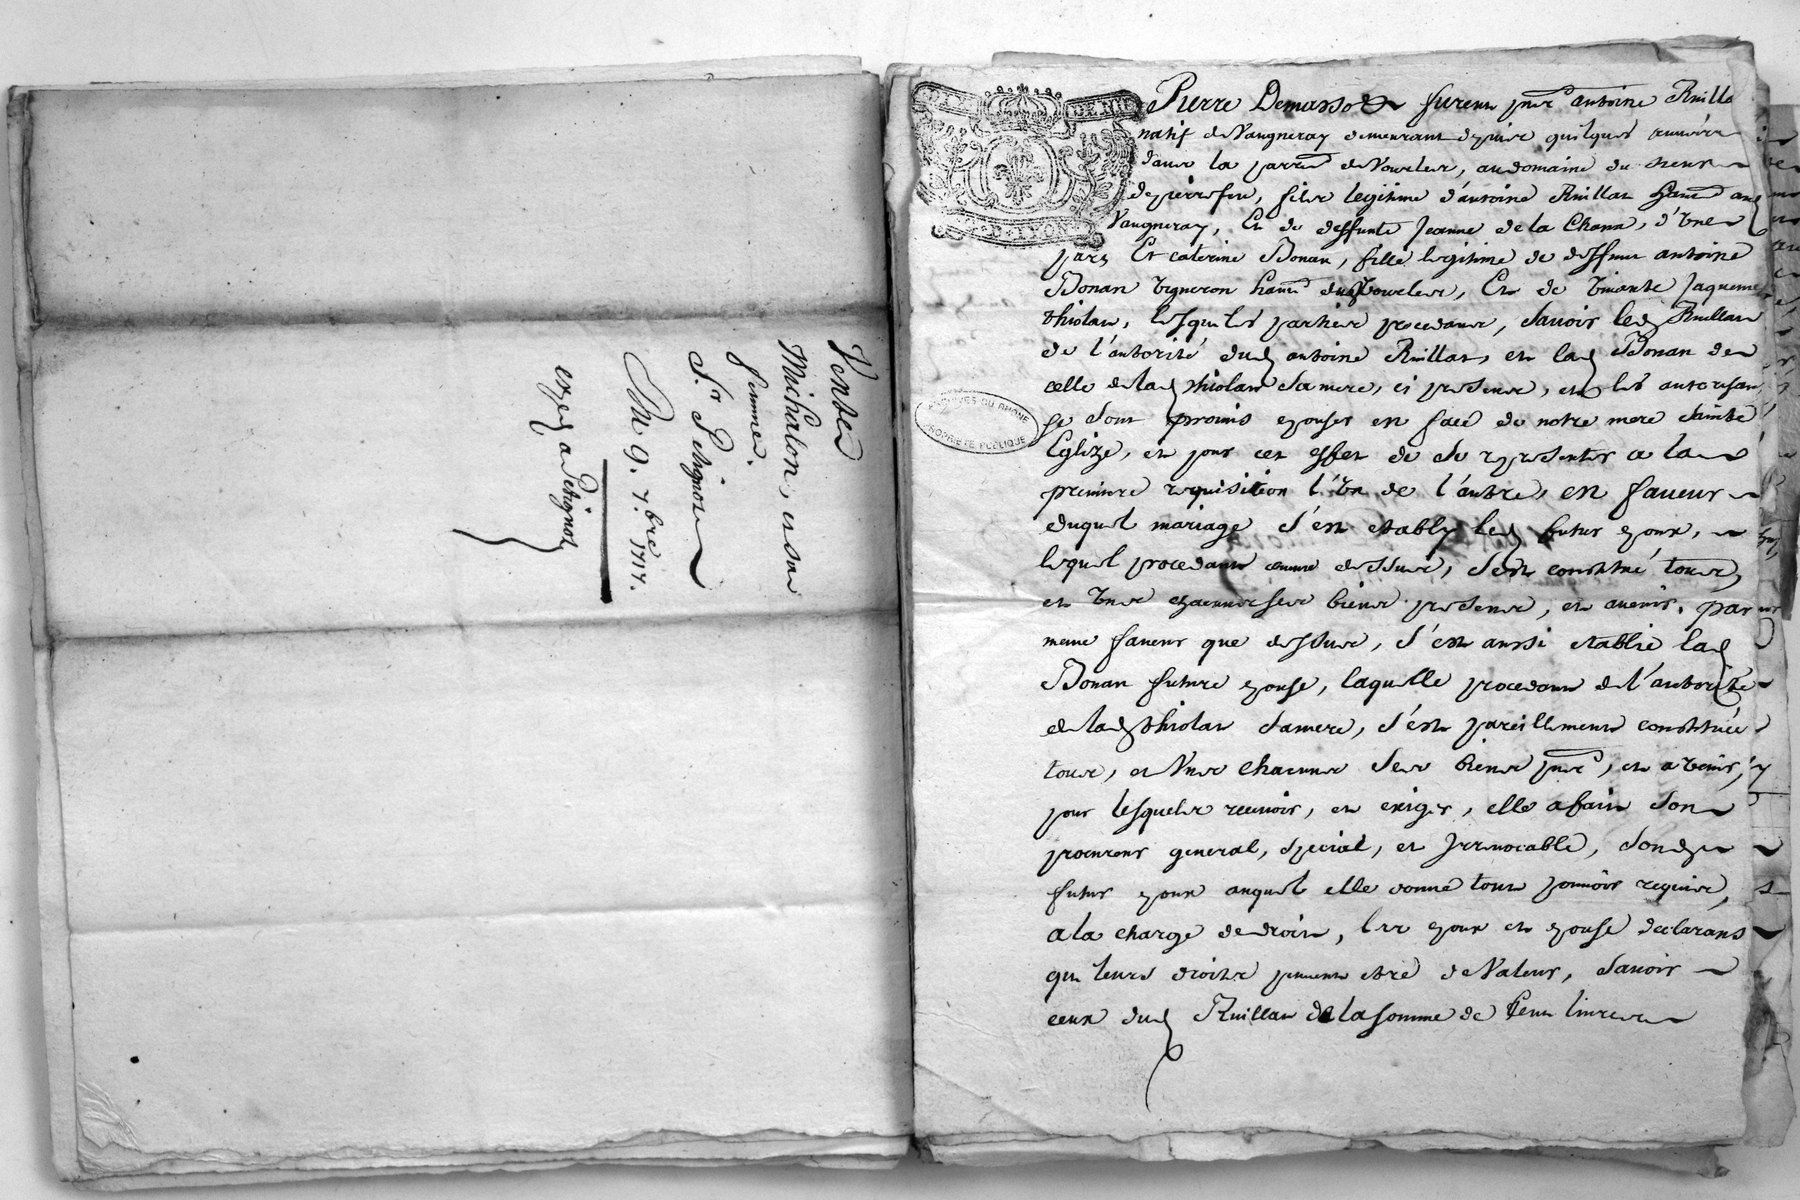 Vente
Michalon, et sa
femme.
S.r Petignot
Du 9. 7.bre 1717.
exp.ée a Petignot
GEN.
DE LYON
ARCHIVES DU RHONE
PROPRIETE PUBLIQUE
Pierre furent pnts antoine Ruillat
natif de Vaugneray demeurant depuis quelques années
dans la parr.e de Vourles, au domaine du sieur
de pierrefeu, fils legitime d'antoine Ruillat hant au
Vaugneray, Et de deffunte Jeanne de la Chana, d'Une
part Et caterine Bonan, fille legitime de deffunt antoine
Bonan vigneron hant Vourles, Et de vivante Jaqueme
thiolar, lesquelles parties procedans, savoir led Ruillat
de l'autorité dud antoine Ruillat, et lad Bonan de
celle de lad thiolar sa mere, ci presens, et les autorisans
se sont promis epouser en face de notre mere sainte
Eglize, et pour cet effet de se representer a la
premiere requisition l'Un de l'autre, en faveur
duquel mariage s'est etably led futur epoux,
lequel procedant comme dessus, s'est constitué tous
et Uns chacuns ses biens presens, et avenir. par
meme faveur que dessus, s'est aussi etablie lad
Bonan future epouse, laquelle procedant de l'autorité
de lad thiolar sa mere, s'est pareillement constituée
tous, et Uns chacuns ses biens pnts, et a venir,
pour lesquels recevoir, et exiger, elle a fait son
procureur general, special, et Irrevocable, sond
futur epoux auquel elle donne tout pouvoir requis,
a la charge de droit, les epoux et epouse declarans
que leurs droits peuvent etre de Valeur, savoir
ceux dud Ruillat de la somme de Cent livres